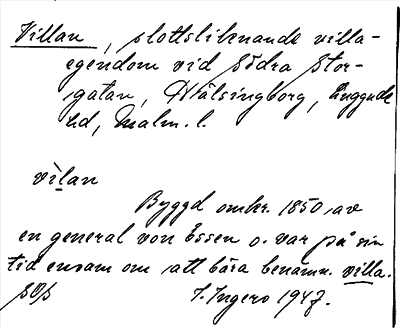 Villan, slottsliknande villa-
egendom vid Södra Stor-
gatan, Hälsingborg, Luggude
hd, Malm. l.
vilan
Byggd omkr. 1850 av
en general von Essen o. var på sin
tid ensam om att bära benämn. villa.
J. Ingers 1947.